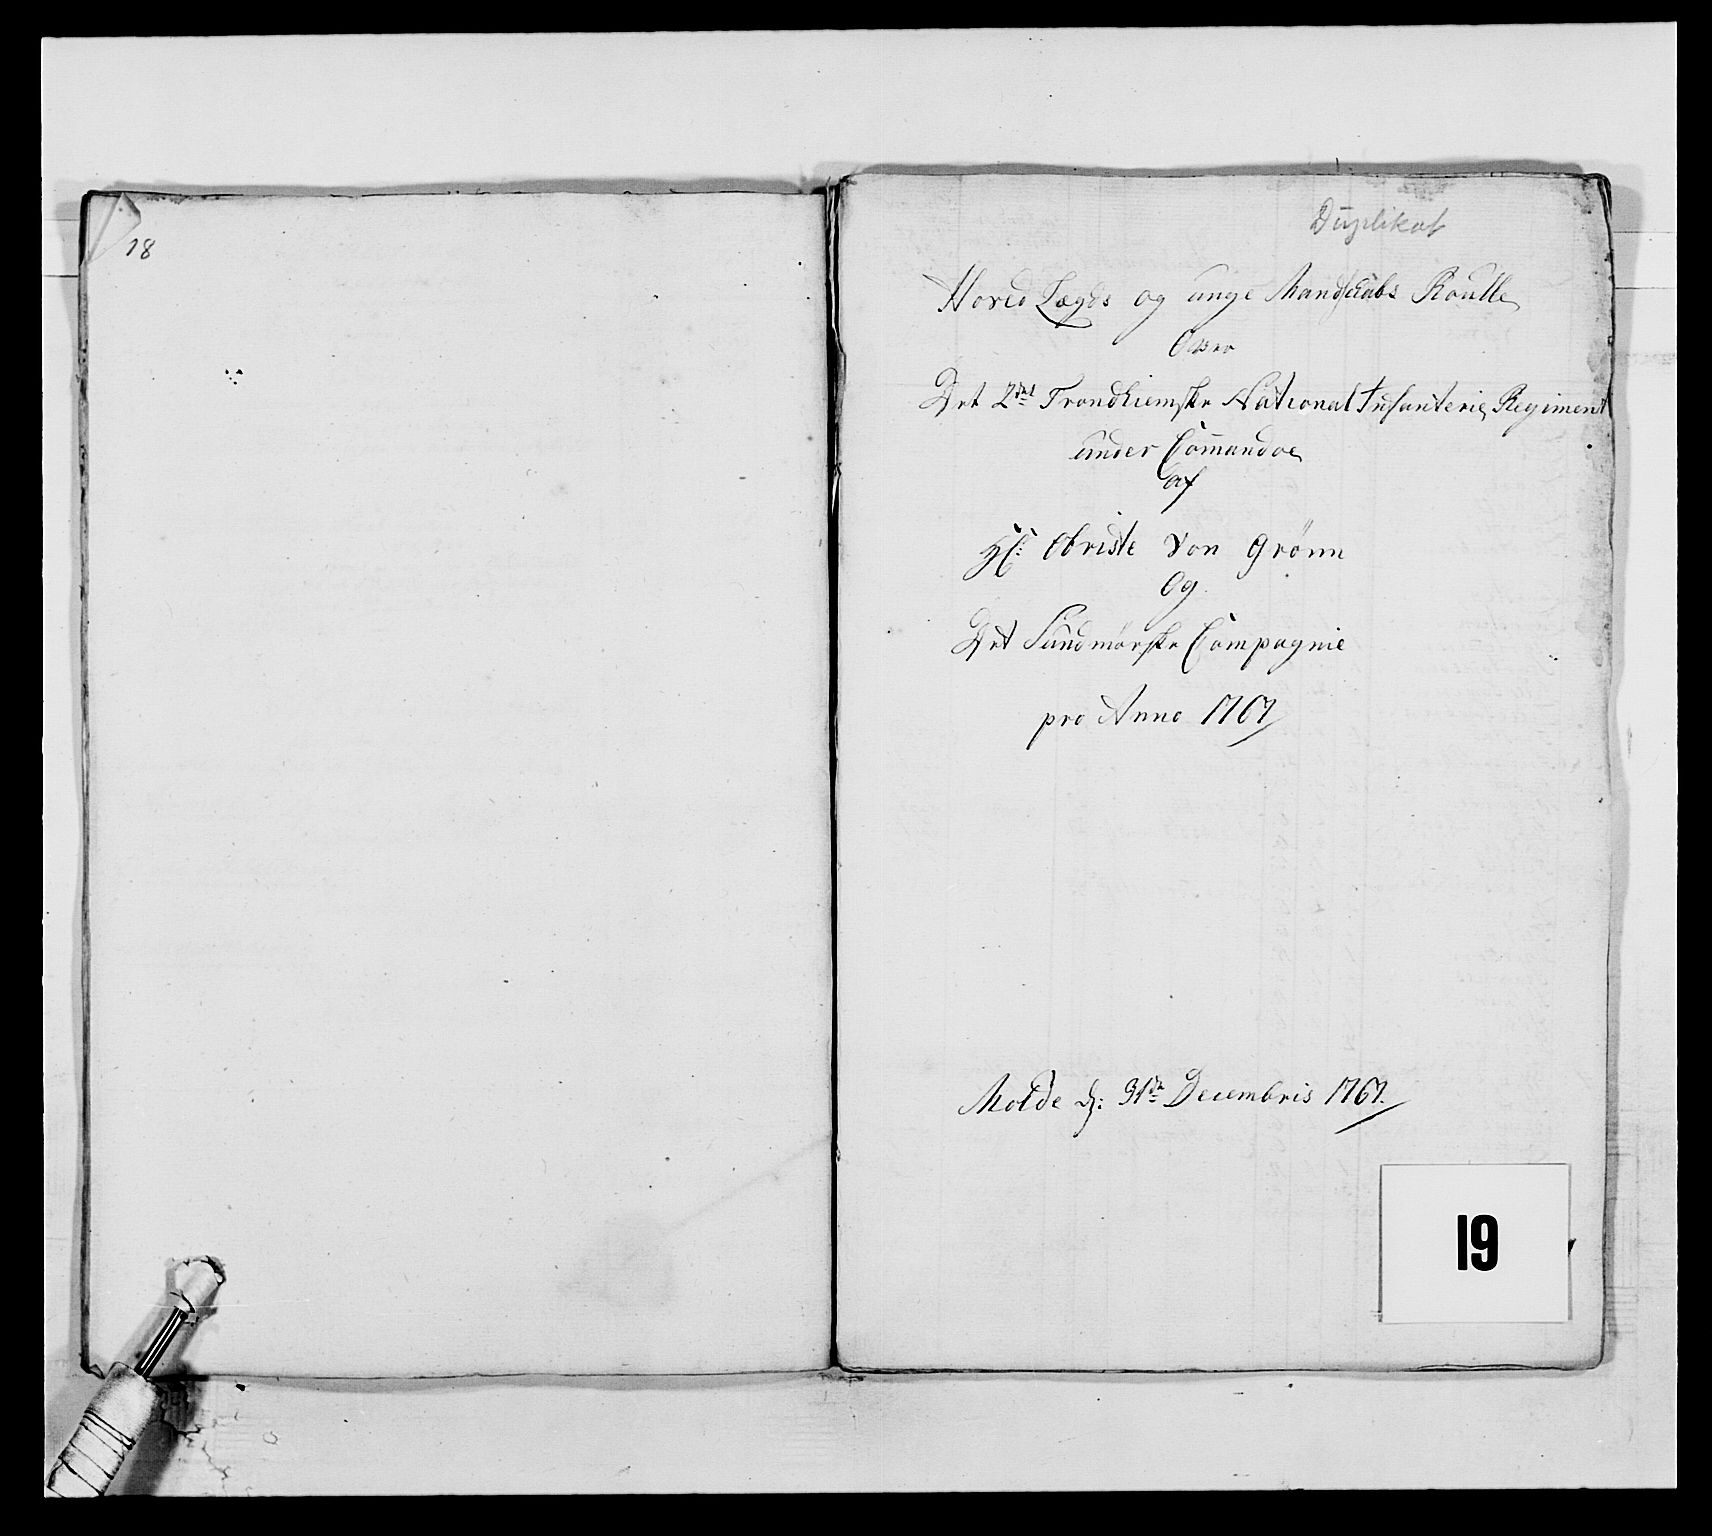 18
Duplikat
Hoved Lægds og unge Mandskabs Roulle
Over
Det 2det Trondhiemske National Infanterie Regiment
under Com̅andoe
af
Hr: Obriste Von Grönn
Og
Det Sundmørske Compagnie
pro Anno 1767
Molde d: 31te Decembris 1767.
19